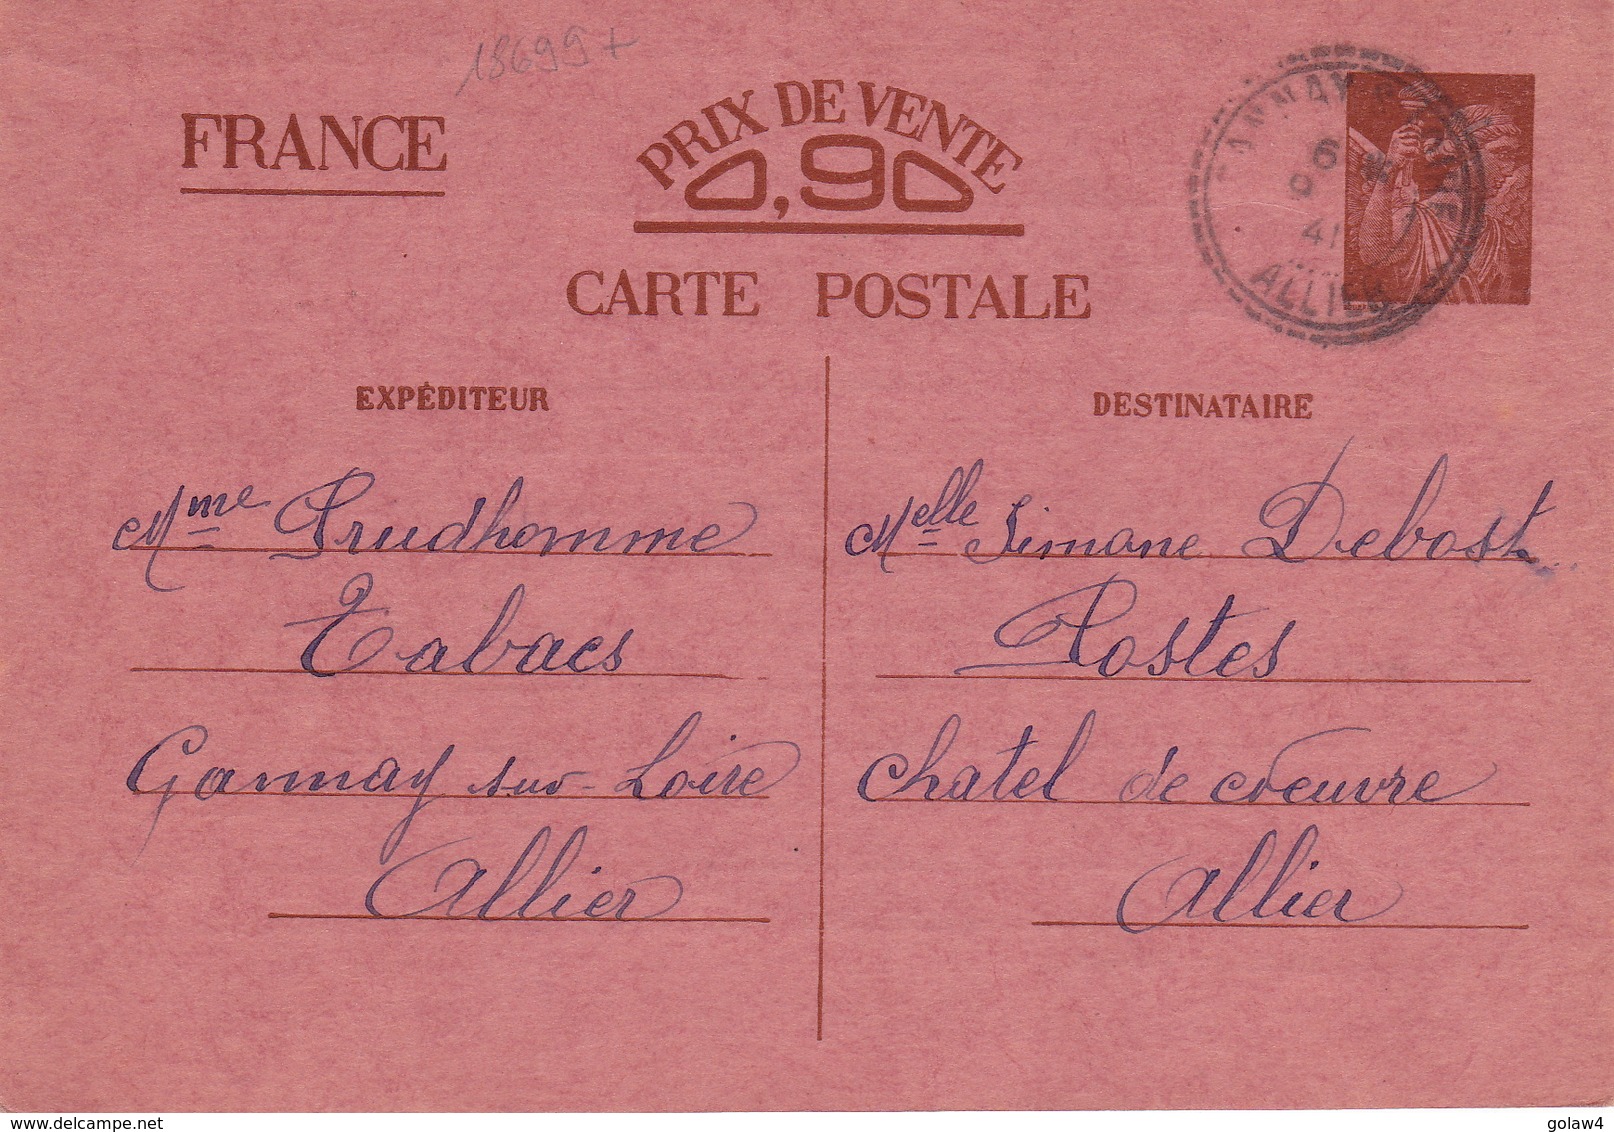 18699+
FRANCE
PRIX DE VENTE
0,90
CARTE POSTALE
6
41
ALLIER
EXPÉDITEUR
Mme Prudhomme
Tabacs
Gannay sur-Loire
Allier
DESTINATAIRE
Melle Simone Debost
Postes
Chatel de coeuvre
Allier
www.delcampe.net
golaw4